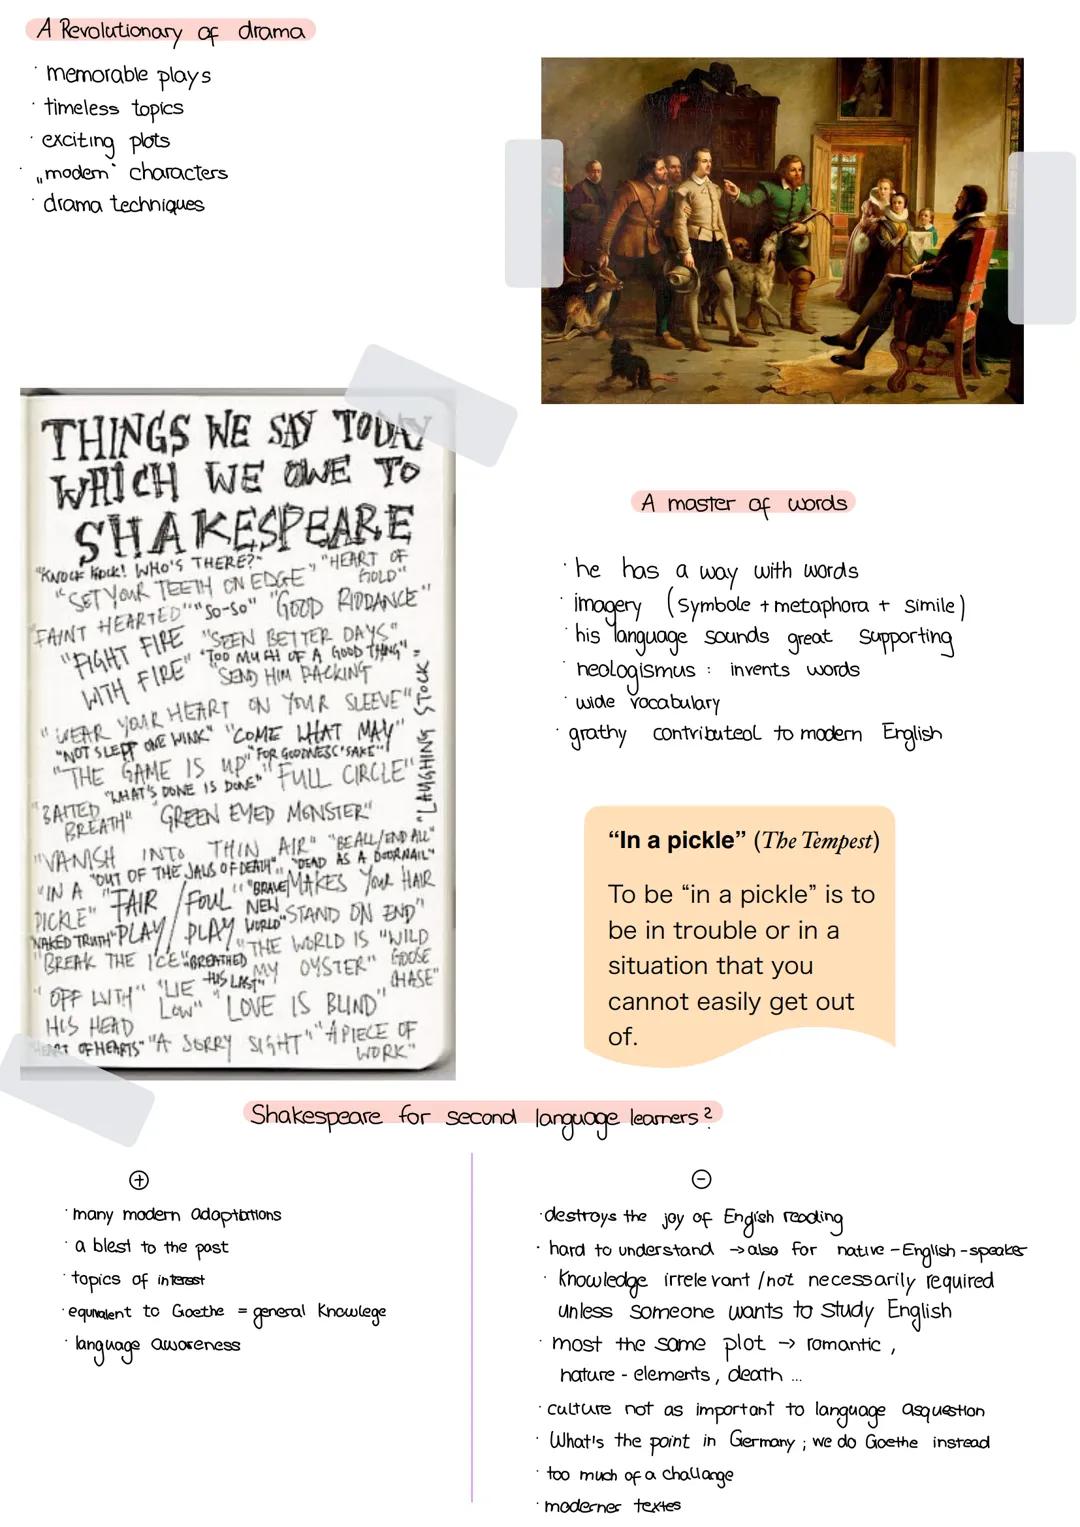 A Revolutionary of drama
· memorable plays
· timeless topics
· exciting plots
· „modern" characters
· drama techniques
THINGS WE SAY TODAY
WHICH WE OWE TO
SHAKESPEARE
"KNOCK KNOCK! WHO'S THERE?" "HEART OF
GOLD"
"SET YOUR TEETH ON EDGE"
"FAINT HEARTED" "SO-SO" "GOOD RIDDANCE"
"FIGHT FIRE
WITH FIRE"
"SEEN BETTER DAYS"
"TOO MUCH OF A GOOD THING"
"SEND HIM PACKING"
"WEAR YOUR HEART ON YOUR SLEEVE"
"LAUGHING STOCK"
"NOT SLEPT ONE WINK" "COME WHAT MAY"
"FOR GOODNESS' SAKE"
"THE GAME IS UP" "FULL CIRCLE"
"WHAT'S DONE IS DONE"
"BAITED
BREATH"
"GREEN EYED MONSTER"
"VANISH INTO THIN AIR" "BE ALL/END ALL"
"OUT OF THE JAWS OF DEATH" "DEAD AS A DOORNAIL"
"IN A
PICKLE"
"FAIR
PLAY/
FOUL
PLAY"
"BRAVE
NEW
WORLD"
"MAKES YOUR HAIR
STAND ON END"
"NAKED TRUTH"
"BREAK THE ICE" "BREATHED
HIS LAST"
"THE WORLD IS
MY OYSTER"
"WILD
GOOSE
CHASE"
"OFF WITH
HIS HEAD"
"LIE
LOW"
"LOVE IS BLIND"
"HEART OF HEARTS" "A SORRY SIGHT" "A PIECE OF
WORK"
A master of words
· he has a way with words
· imagery (Symbole + metaphora + simile)
· his language sounds great supporting
· neologismus : invents words
· wide vocabulary
· grathy contributeol to modern English
"In a pickle" (The Tempest)
To be "in a pickle" is to
be in trouble or in a
situation that you
cannot easily get out
of.
Shakespeare for second language learners?
+
· many modern adaptations
· a blest to the past
· topics of interest
· equivalent to Goethe = general Knowlege
· language awareness
-
· destroys the joy of English reading
· hard to understand → also for native-English-speaker
· Knowledge irrelevant / not necessarily required
unless someone wants to study English
· most the same plot → romantic,
nature - elements, death ...
· culture not as important to language asquestion
· What's the point in Germany ; we do Goethe instead
· too much of a challange
· moderner textes